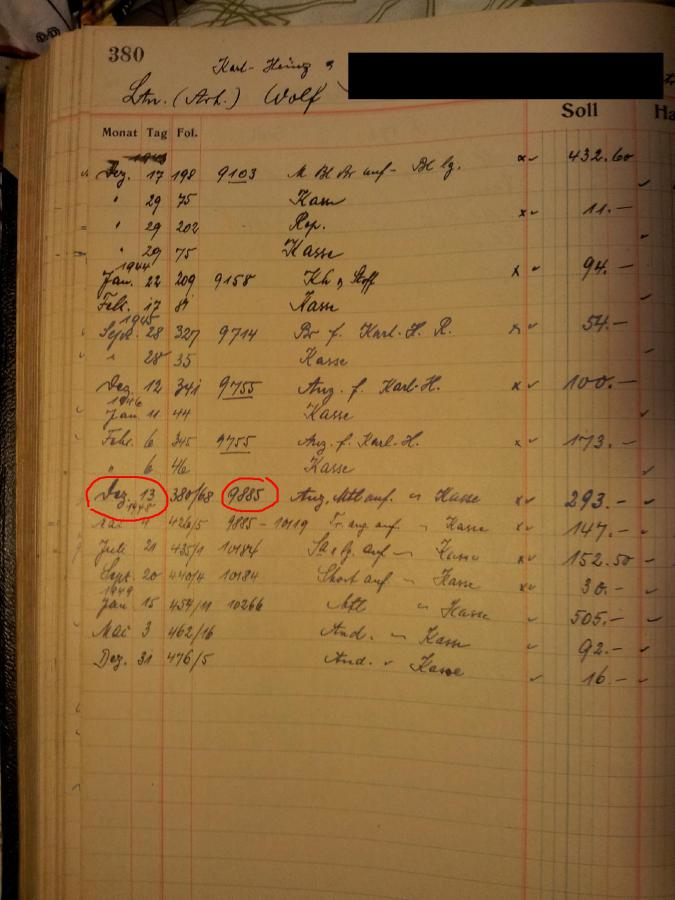 380
Karl-Heinz
Ltn. (Arh.) Wolf
Soll Ha
Monat Tag Fol.
Dez. 17 198 9103 auf 432.60
" 29 75 Kasse
" 29 202 Rep. 11.-
" 29 75 Kasse
1944
Jan. 22 209 9158 Stoff 94.-
Feb. 17 81 Kasse
1945
Sept. 28 327 9714 f. Karl-H. R. 54.-
" 28 35 Kasse
Dez 12 341 9755 Anz. f. Karl-H. 100.-
1946
Jan 11 44 Kasse
Febr. 6 345 9755 Anz. f. Karl-H. 173.-
" 6 46 Kasse
Dez. 13 380/68 9885 Anz, Mtl auf. Kasse 293.-
1948
Mai 4 426/5 9885-10119 auf. Kasse 147.-
Juli 21 435/1 10184 auf Kasse 152.50
Sept. 20 440/4 10184 auf Kasse 30.-
1949
Jan 15 454/11 10266 Mtl Kasse 505.-
Mai 3 462/16 And. Kasse 92.-
Dez. 31 476/5 And. Kasse 16.-